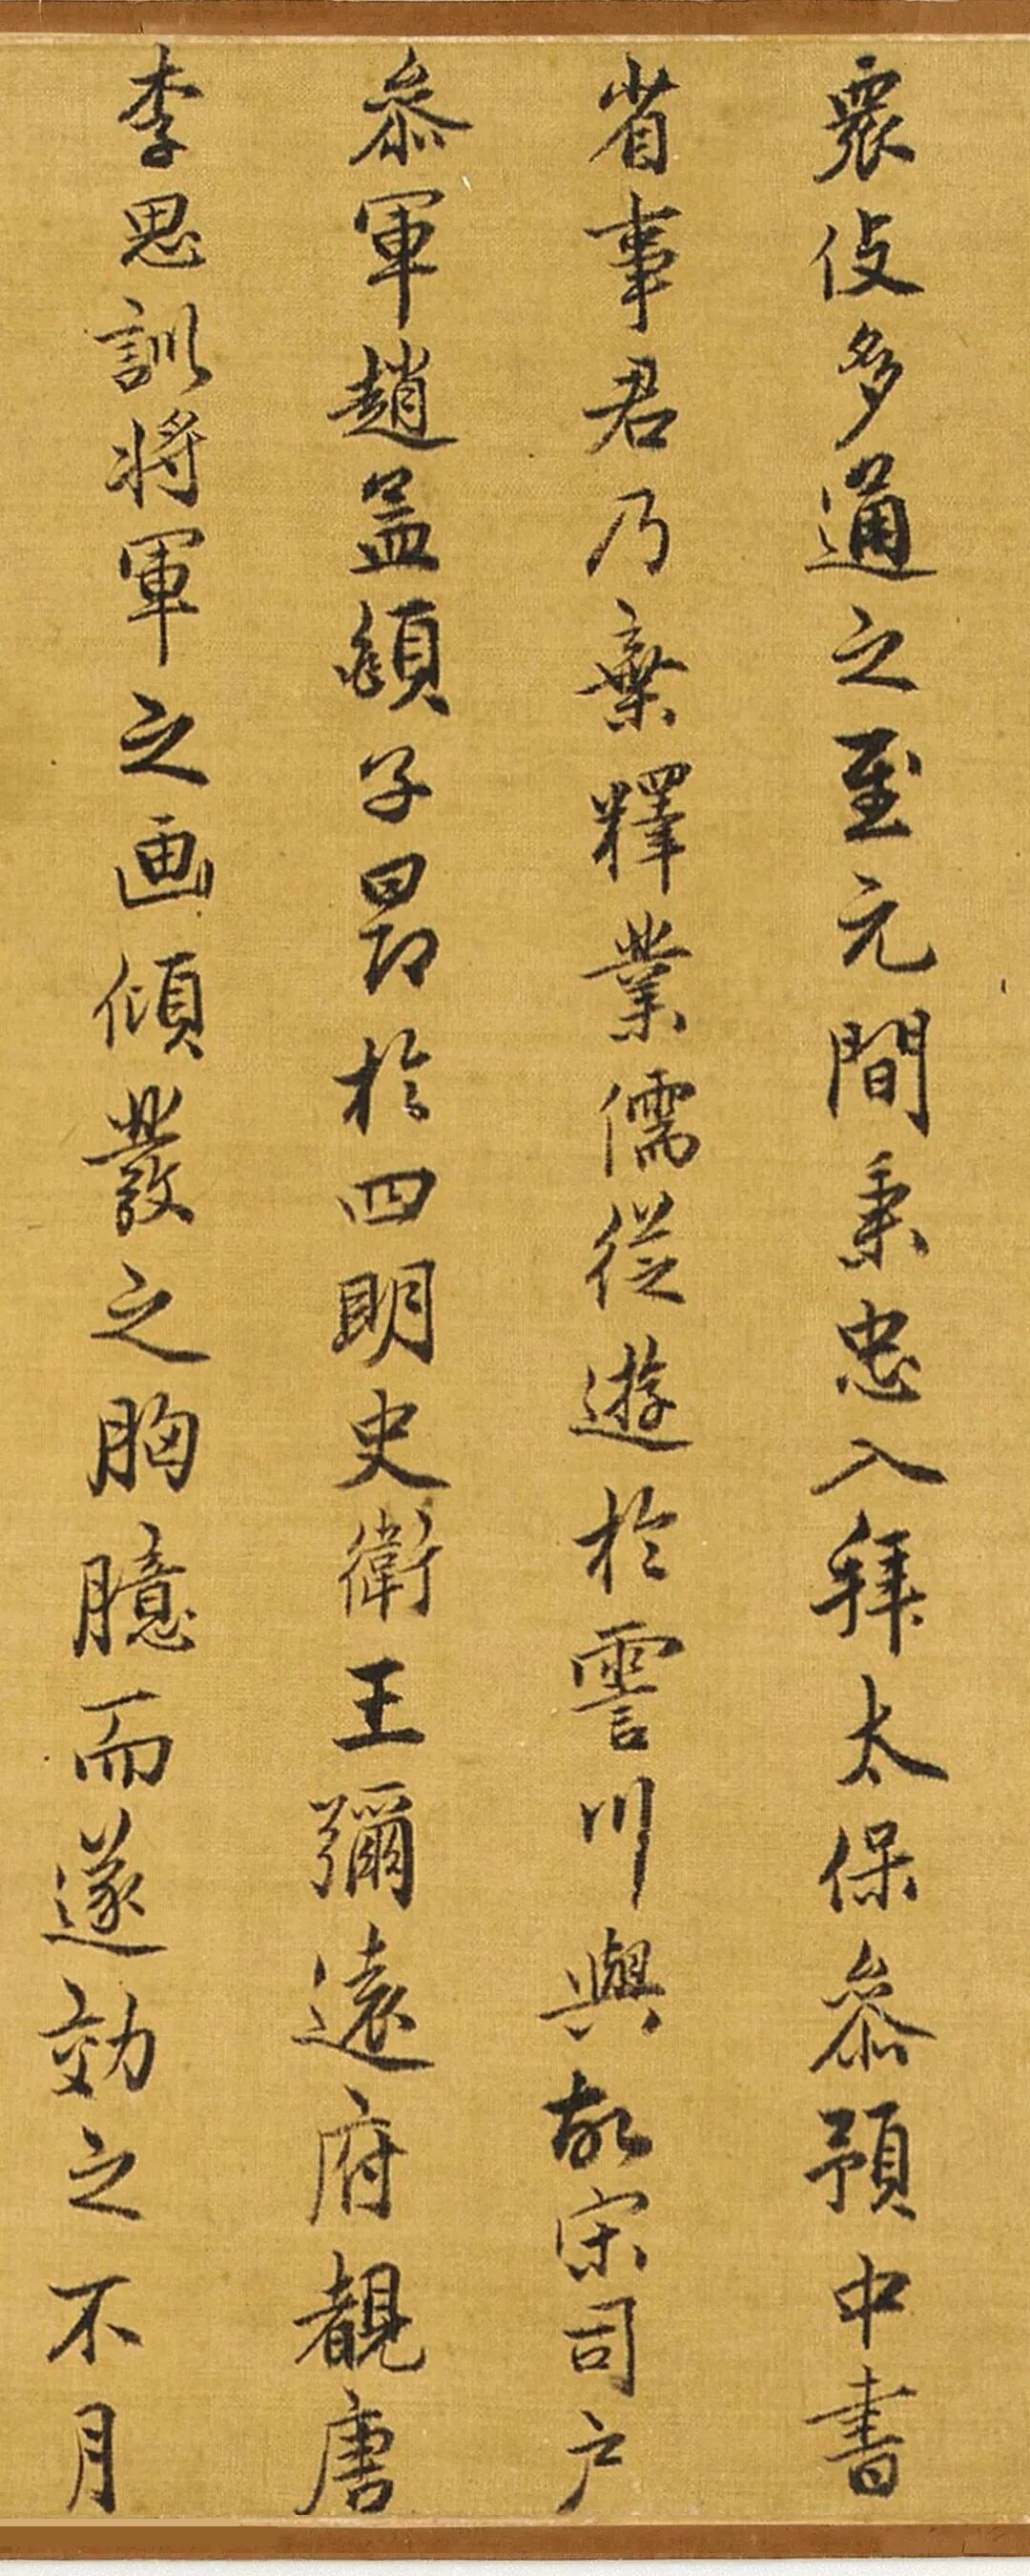 衆伎多通之至元間秉忠入拜太保叅預中書
省事君乃棄釋業儒從遊於霅川與故宋司户
叅軍趙孟頫子昂於四明史衛王彌遠府覩唐
李思訓將軍之画傾葢之胸臆而遂効之不月